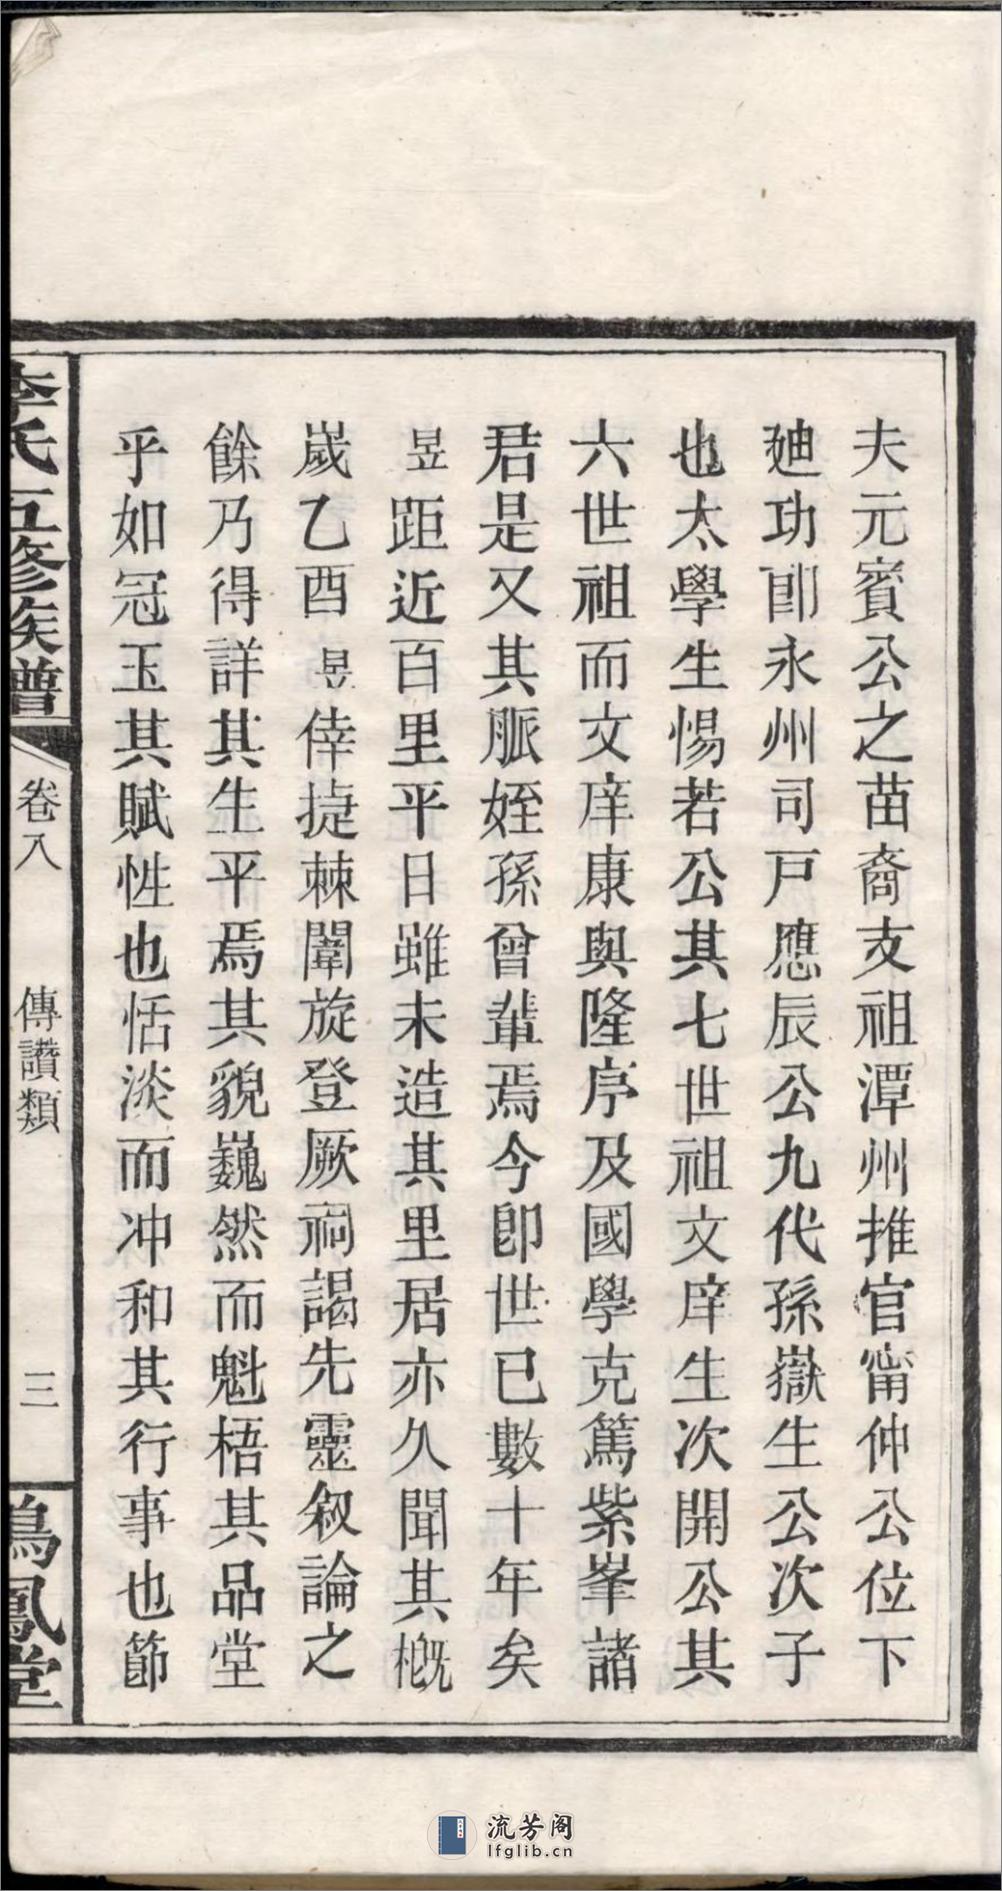 夫元賓公之苗裔支祖潭州推官甯仲公位下
廸功郎永州司戸應辰公九代孫嶽生公次子
也太學生惕若公其七世祖文庠生次開公其
六世祖而文庠康與隆序及國學克篤紫峯諸
君是又其脈姪孫曾輩焉今卽世已數十年矣
昱距近百里平日雖未造其里居亦久聞其概
嵗乙酉昱倖捷棘闈旋登厥祠謁先靈叙論之
餘乃得詳其生平焉其貌巍然而魁梧其品堂
乎如冠玉其賦性也恬淡而冲和其行事也節
李氏五修族譜
卷八
傳讚類
三
鳴鳳堂
流芳阁
lfglib.cn